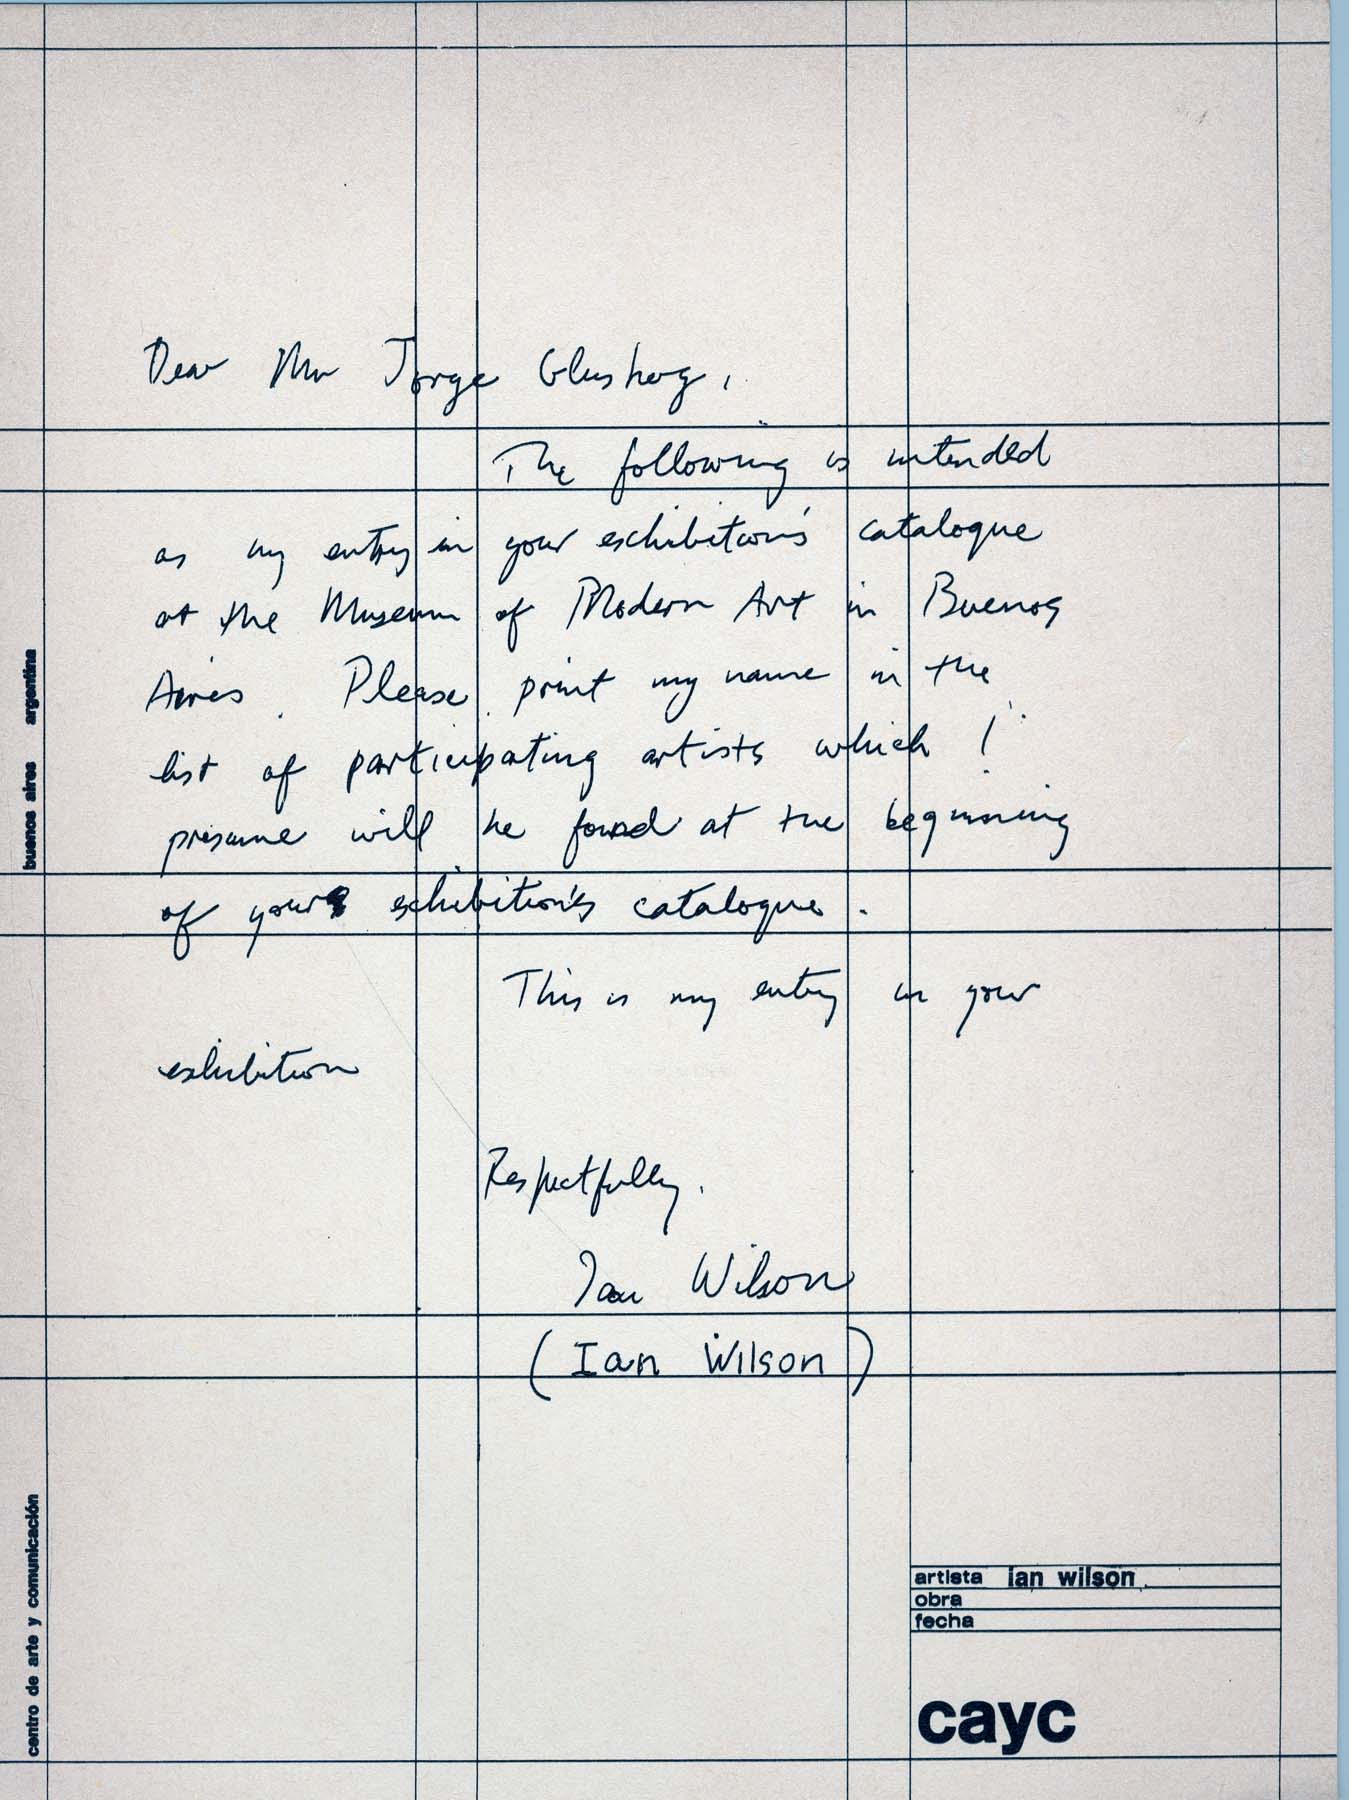 Dear Mr Jorge Glushog,
The following is intended
as my entry in your exhibition's catalogue
at the Museum of Modern Art in Buenos
Aires. Please print my name in the
list of participating artists which I
presume will be found at the beginning
of your exhibition's catalogue.
This is my entry in your
exhibition
Respectfully,
Ian Wilson
(Ian Wilson)
buenos aires argentina
centro de arte y comunicación
artista ian wilson
obra
fecha
cayc